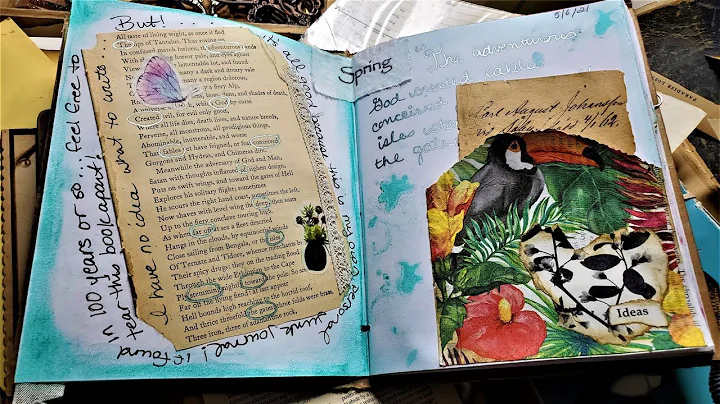 But!...
it's all good because this is my own personal junk journal! if found
in 100 years or so... feel free to
tear this book apart!
I have no idea what to write...
All taste of living wight, as once it fled
The ape of Tantalus. Thus roving
In confused march forlorn, adventurous bands
With horror pale, and eyes aghast
View lamentable lot, and found
No many a dark and dreary vale
many a region dolorous,
many a fiery Alp,
dens, and shades of death,
A universe of death, which God by curse
Created evil, for evil only good,
Where all life dies, death lives, and nature breeds,
Perverse, all monstrous, all prodigious things,
Abominable, inutterable, and worse
Than fables yet have feigned, or fear conceived
Gorgons and Hydras, and Chimeras dire.
Meanwhile the adversary of God and Man,
Satan with thoughts inflamed of highest design,
Puts on swift wings, and toward the gates of Hell
Explores his solitary flight; sometimes
the left,
Now shaves with level wing the deep, then soars
Up to the fiery concave touring high.
As when far off at sea a fleet descried
Hangs in the clouds, by equinoctial
Close sailing from Bengala, or the isles
Of Ternate and Tidore, whence merchants
Their spicy drugs: they on the trading flood
Through the wide Ethiopian to the Cape
Ply stemming nightly toward the pole. So
Far off the flying fiend: at last appear
Hell bounds high reaching to the horrid roof,
And thrice threefold the gates; three folds were brass,
Three iron, three of adamantine rock,
5/6/21
Spring
"The adventurous
God created fables
conceived
isles
the gates
Carl August Johansson
Ideas
PARADISE LOST